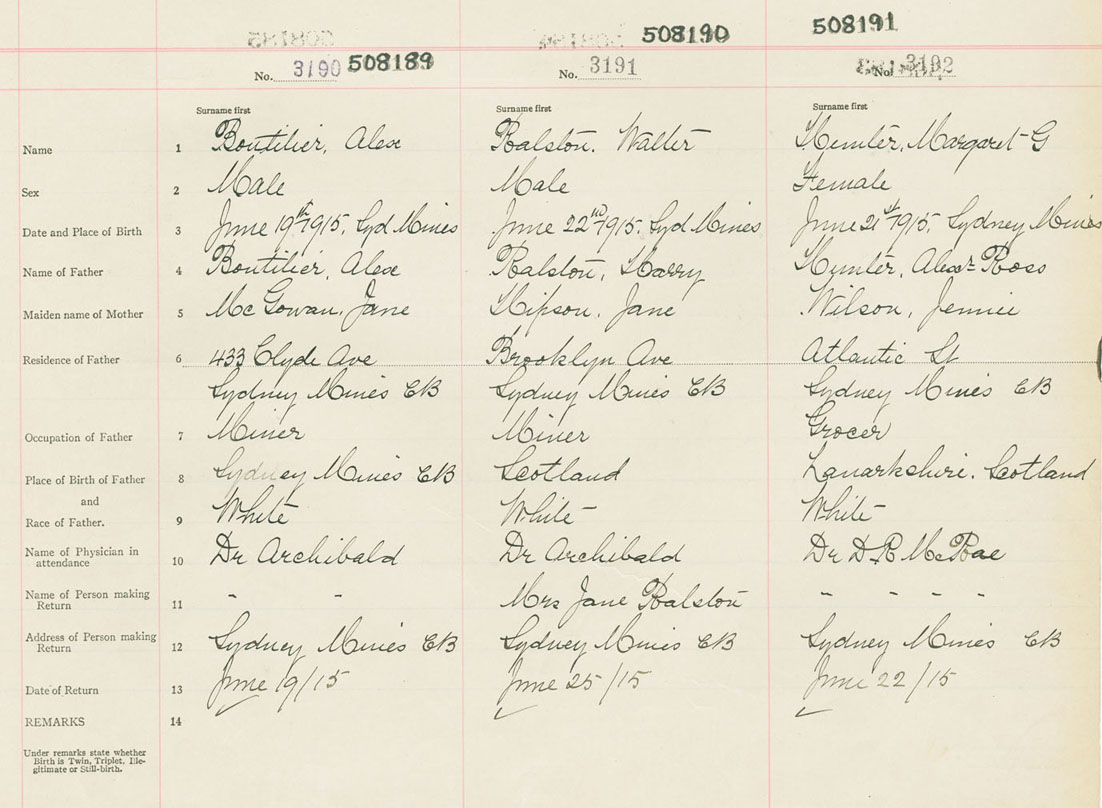 508190 508191
No. 3190 508189 No. 3191 No. 3192
Surname first Surname first Surname first
Name 1 Boutilier, Alex Ralston. Walter Hunter, Margaret G
Sex 2 Male Male Female
Date and Place of Birth 3 June 19th 1915, Syd Mines June 22nd 1915, Syd Mines June 21st 1915, Sydney Mines
Name of Father 4 Boutilier, Alex Ralston, Harry Hunter, Alexr Ross
Maiden name of Mother 5 McGowan, Jane Hipson, Jane Wilson, Jennie
Residence of Father 6 433 Clyde Ave Brooklyn Ave Atlantic St
Sydney Mines CB Sydney Mines CB Sydney Mines CB
Occupation of Father 7 Miner Miner Grocer
Place of Birth of Father 8 Sydney Mines CB Scotland Lanarkshire. Scotland
and
Race of Father. 9 White White White
Name of Physician in attendance 10 Dr Archibald Dr Archibald Dr D. R McRae
Name of Person making Return 11 " " Mrs Jane Ralston " " " "
Address of Person making Return 12 Sydney Mines CB Sydney Mines CB Sydney Mines CB
Date of Return 13 June 19/15 June 25/15 June 22/15
REMARKS 14
Under remarks state whether
Birth is Twin, Triplet, Ille-
gitimate or Still-birth.